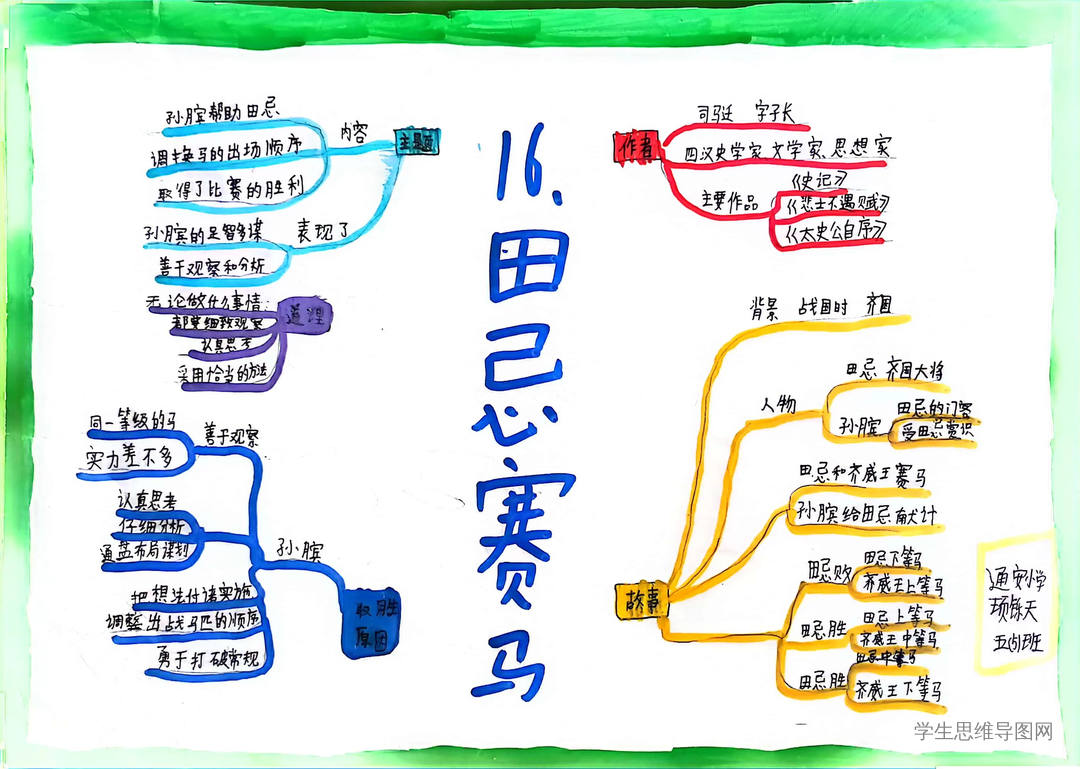 16.田忌赛马
主题
内容
孙膑帮助田忌
调换马的出场顺序
取得了比赛的胜利
表现了
孙膑的足智多谋
善于观察和分析
道理
无论做什么事情:
都要细致观察
认真思考
采用恰当的方法
取胜
原因
孙膑
善于观察
同一等级的马
实力差不多
认真思考
仔细分析
通盘布局谋划
把想法付诸实施
调整出战马匹的顺序
勇于打破常规
作者
司马迁 字子长
四汉史学家、文学家、思想家
主要作品
《史记》
《悲士不遇赋》
《太史公自序》
故事
背景 战国时 齐国
人物
田忌 齐国大将
孙膑
田忌的门客
受田忌赏识
田忌和齐威王赛马
孙膑给田忌献计
田忌败
田忌下等马
齐威王上等马
田忌胜
田忌上等马
齐威王中等马
田忌胜
田忌中等马
齐威王下等马
通安小学
学生思维导图网